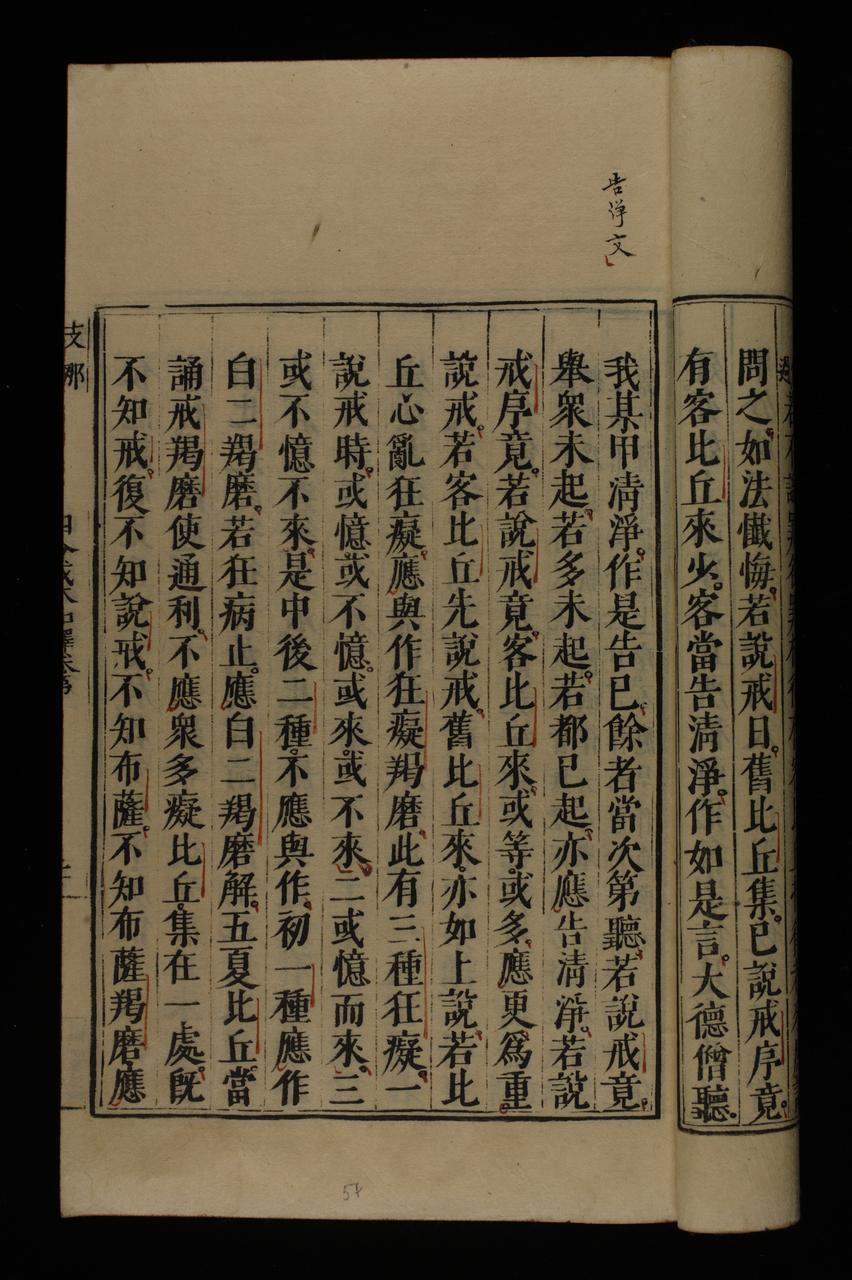 問之如法懺悔若說戒日舊比丘集已說戒序竟
有客比丘來少客當告清淨作如是言大德僧聽
告淨文
我某甲清淨作是告已餘者當次第聽若說戒竟
舉眾未起若多未起若都已起亦應告清淨若說
戒序竟若說戒竟客比丘來或等或多應更為重
說戒若客比丘先說戒舊比丘來亦如上說若比
丘心亂狂癡應與作狂癡羯磨此有三種狂癡一
說戒時或憶或不憶或來或不來二或憶而來三
或不憶不來是中後二種不應與作初一種應作
白二羯磨若狂病止應白二羯磨解五夏比丘當
誦戒羯磨使通利不應眾多癡比丘集在一處既
不知戒復不知說戒不知布薩不知布薩羯磨應
支那
57